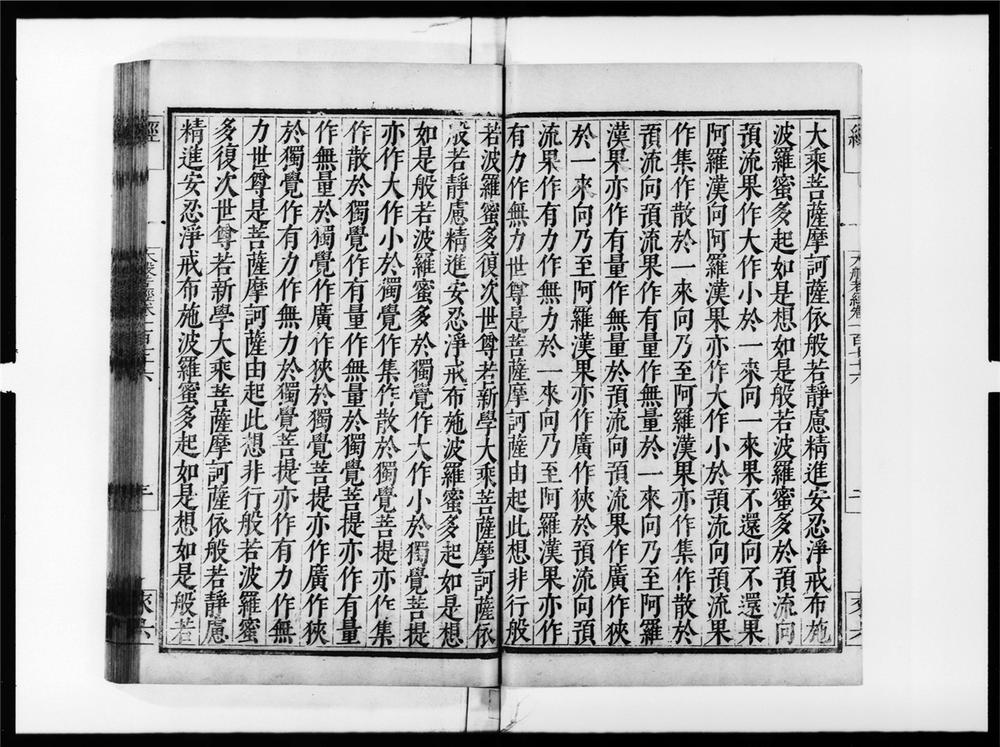 大乘菩薩摩訶薩依般若靜慮精進安忍淨戒布施
波羅蜜多起如是想如是般若波羅蜜多於預流向
預流果作大作小於一來向一來果不還向不還果
阿羅漢向阿羅漢果亦作大作小於預流向預流果
作集作散於一來向乃至阿羅漢果亦作集作散於
預流向預流果作有量作無量於一來向乃至阿羅
漢果亦作有量作無量於預流向預流果作廣作狹
於一來向乃至阿羅漢果亦作廣作狹於預流向預
流果作有力作無力於一來向乃至阿羅漢果亦作
有力作無力世尊是菩薩摩訶薩由起此想非行般
若波羅蜜多復次世尊若新學大乘菩薩摩訶薩依
般若靜慮精進安忍淨戒布施波羅蜜多起如是想
如是般若波羅蜜多於獨覺作大作小於獨覺菩提
亦作大作小於獨覺作集作散於獨覺菩提亦作集
作散於獨覺作有量作無量於獨覺菩提亦作有量
作無量於獨覺作廣作狹於獨覺菩提亦作廣作狹
於獨覺作有力作無力於獨覺菩提亦作有力作無
力世尊是菩薩摩訶薩由起此想非行般若波羅蜜
多復次世尊若新學大乘菩薩摩訶薩依般若靜慮
精進安忍淨戒布施波羅蜜多起如是想如是般若
經